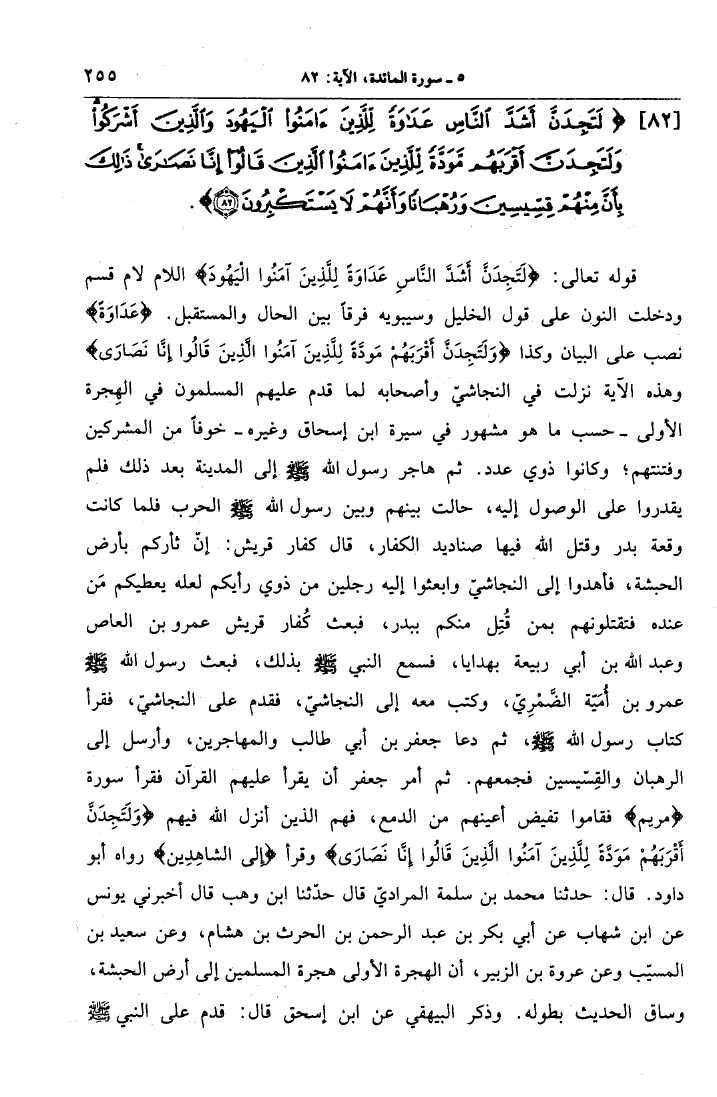 ٥ ـ سورة المائدة، الآية: ٨٢ ٢٥٥
[٨٢] ﴿ لَتَجِدَنَّ أَشَدَّ ٱلنَّاسِ عَدَٰوَةً لِّلَّذِينَ ءَامَنُوا۟ ٱلْيَهُودَ وَٱلَّذِينَ أَشْرَكُوا۟ۖ
وَلَتَجِدَنَّ أَقْرَبَهُم مَّوَدَّةً لِّلَّذِينَ ءَامَنُوا۟ ٱلَّذِينَ قَالُوٓا۟ إِنَّا نَصَٰرَىٰۚ ذَٰلِكَ
بِأَنَّ مِنْهُمْ قِسِّيسِينَ وَرُهْبَانًا وَأَنَّهُمْ لَا يَسْتَكْبِرُونَ ﴿٨٢﴾ ﴾.
قوله تعالى: ﴿لَتَجِدَنَّ أَشَدَّ النَّاسِ عَدَاوَةً لِلَّذِينَ آمَنُوا الْيَهُودَ﴾ اللام لام قسم
ودخلت النون على قول الخليل وسيبويه فرقاً بين الحال والمستقبل. ﴿عَدَاوَةً﴾
نصب على البيان وكذا ﴿وَلَتَجِدَنَّ أَقْرَبَهُمْ مَوَدَّةً لِلَّذِينَ آمَنُوا الَّذِينَ قَالُوا إِنَّا نَصَارَى﴾
وهذه الآية نزلت في النجاشيّ وأصحابه لما قدم عليهم المسلمون في الهِجرة
الأولى ـ حسب ما هو مشهور في سيرة ابن إسحاق وغيره ـ خوفاً من المشركين
وفتنتهم؛ وكانوا ذوي عدد. ثم هاجر رسول الله ﷺ إلى المدينة بعد ذلك فلم
يقدروا على الوصول إليه، حالت بينهم وبين رسول الله ﷺ الحرب فلما كانت
وقعة بدر وقتل الله فيها صناديد الكفار، قال كفار قريش: إنّ ثأركم بأرض
الحبشة، فأهدوا إلى النجاشيّ وابعثوا إليه رجلين من ذوي رأيكم لعله يعطيكم مَن
عنده فتقتلونهم بمن قُتِل منكم ببدر، فبعث كُفار قريش عمرو بن العاص
وعبد الله بن أبي ربيعة بهدايا، فسمع النبي ﷺ بذلك، فبعث رسول الله ﷺ
عمرو بن أُمَيّة الضَّمْرِيّ، وكتب معه إلى النجاشيّ، فقدم على النجاشيّ، فقرأ
كتاب رسول الله ﷺ، ثم دعا جعفر بن أبي طالب والمهاجرين، وأرسل إلى
الرهبان والقِسّيسين فجمعهم. ثم أمر جعفر أن يقرأ عليهم القرآن فقرأ سورة
﴿مريم﴾ فقاموا تفيض أعينهم من الدمع، فهم الذين أنزل الله فيهم ﴿وَلَتَجِدَنَّ
أَقْرَبَهُمْ مَوَدَّةً لِلَّذِينَ آمَنُوا الَّذِينَ قَالُوا إِنَّا نَصَارَى﴾ وقرأ ﴿إلى الشاهِدِين﴾ رواه أبو
داود. قال: حدثنا محمد بن سلمة المراديّ قال حدّثنا ابن وهب قال أخبرني يونس
عن ابن شهاب عن أبي بكر بن عبد الرحمن بن الحرث بن هشام، وعن سعيد بن
المسيّب وعن عروة بن الزبير، أن الهجرة الأولى هجرة المسلمين إلى أرض الحبشة،
وساق الحديث بطوله. وذكر البيهقي عن ابن إسحق قال: قدم على النبي ﷺ